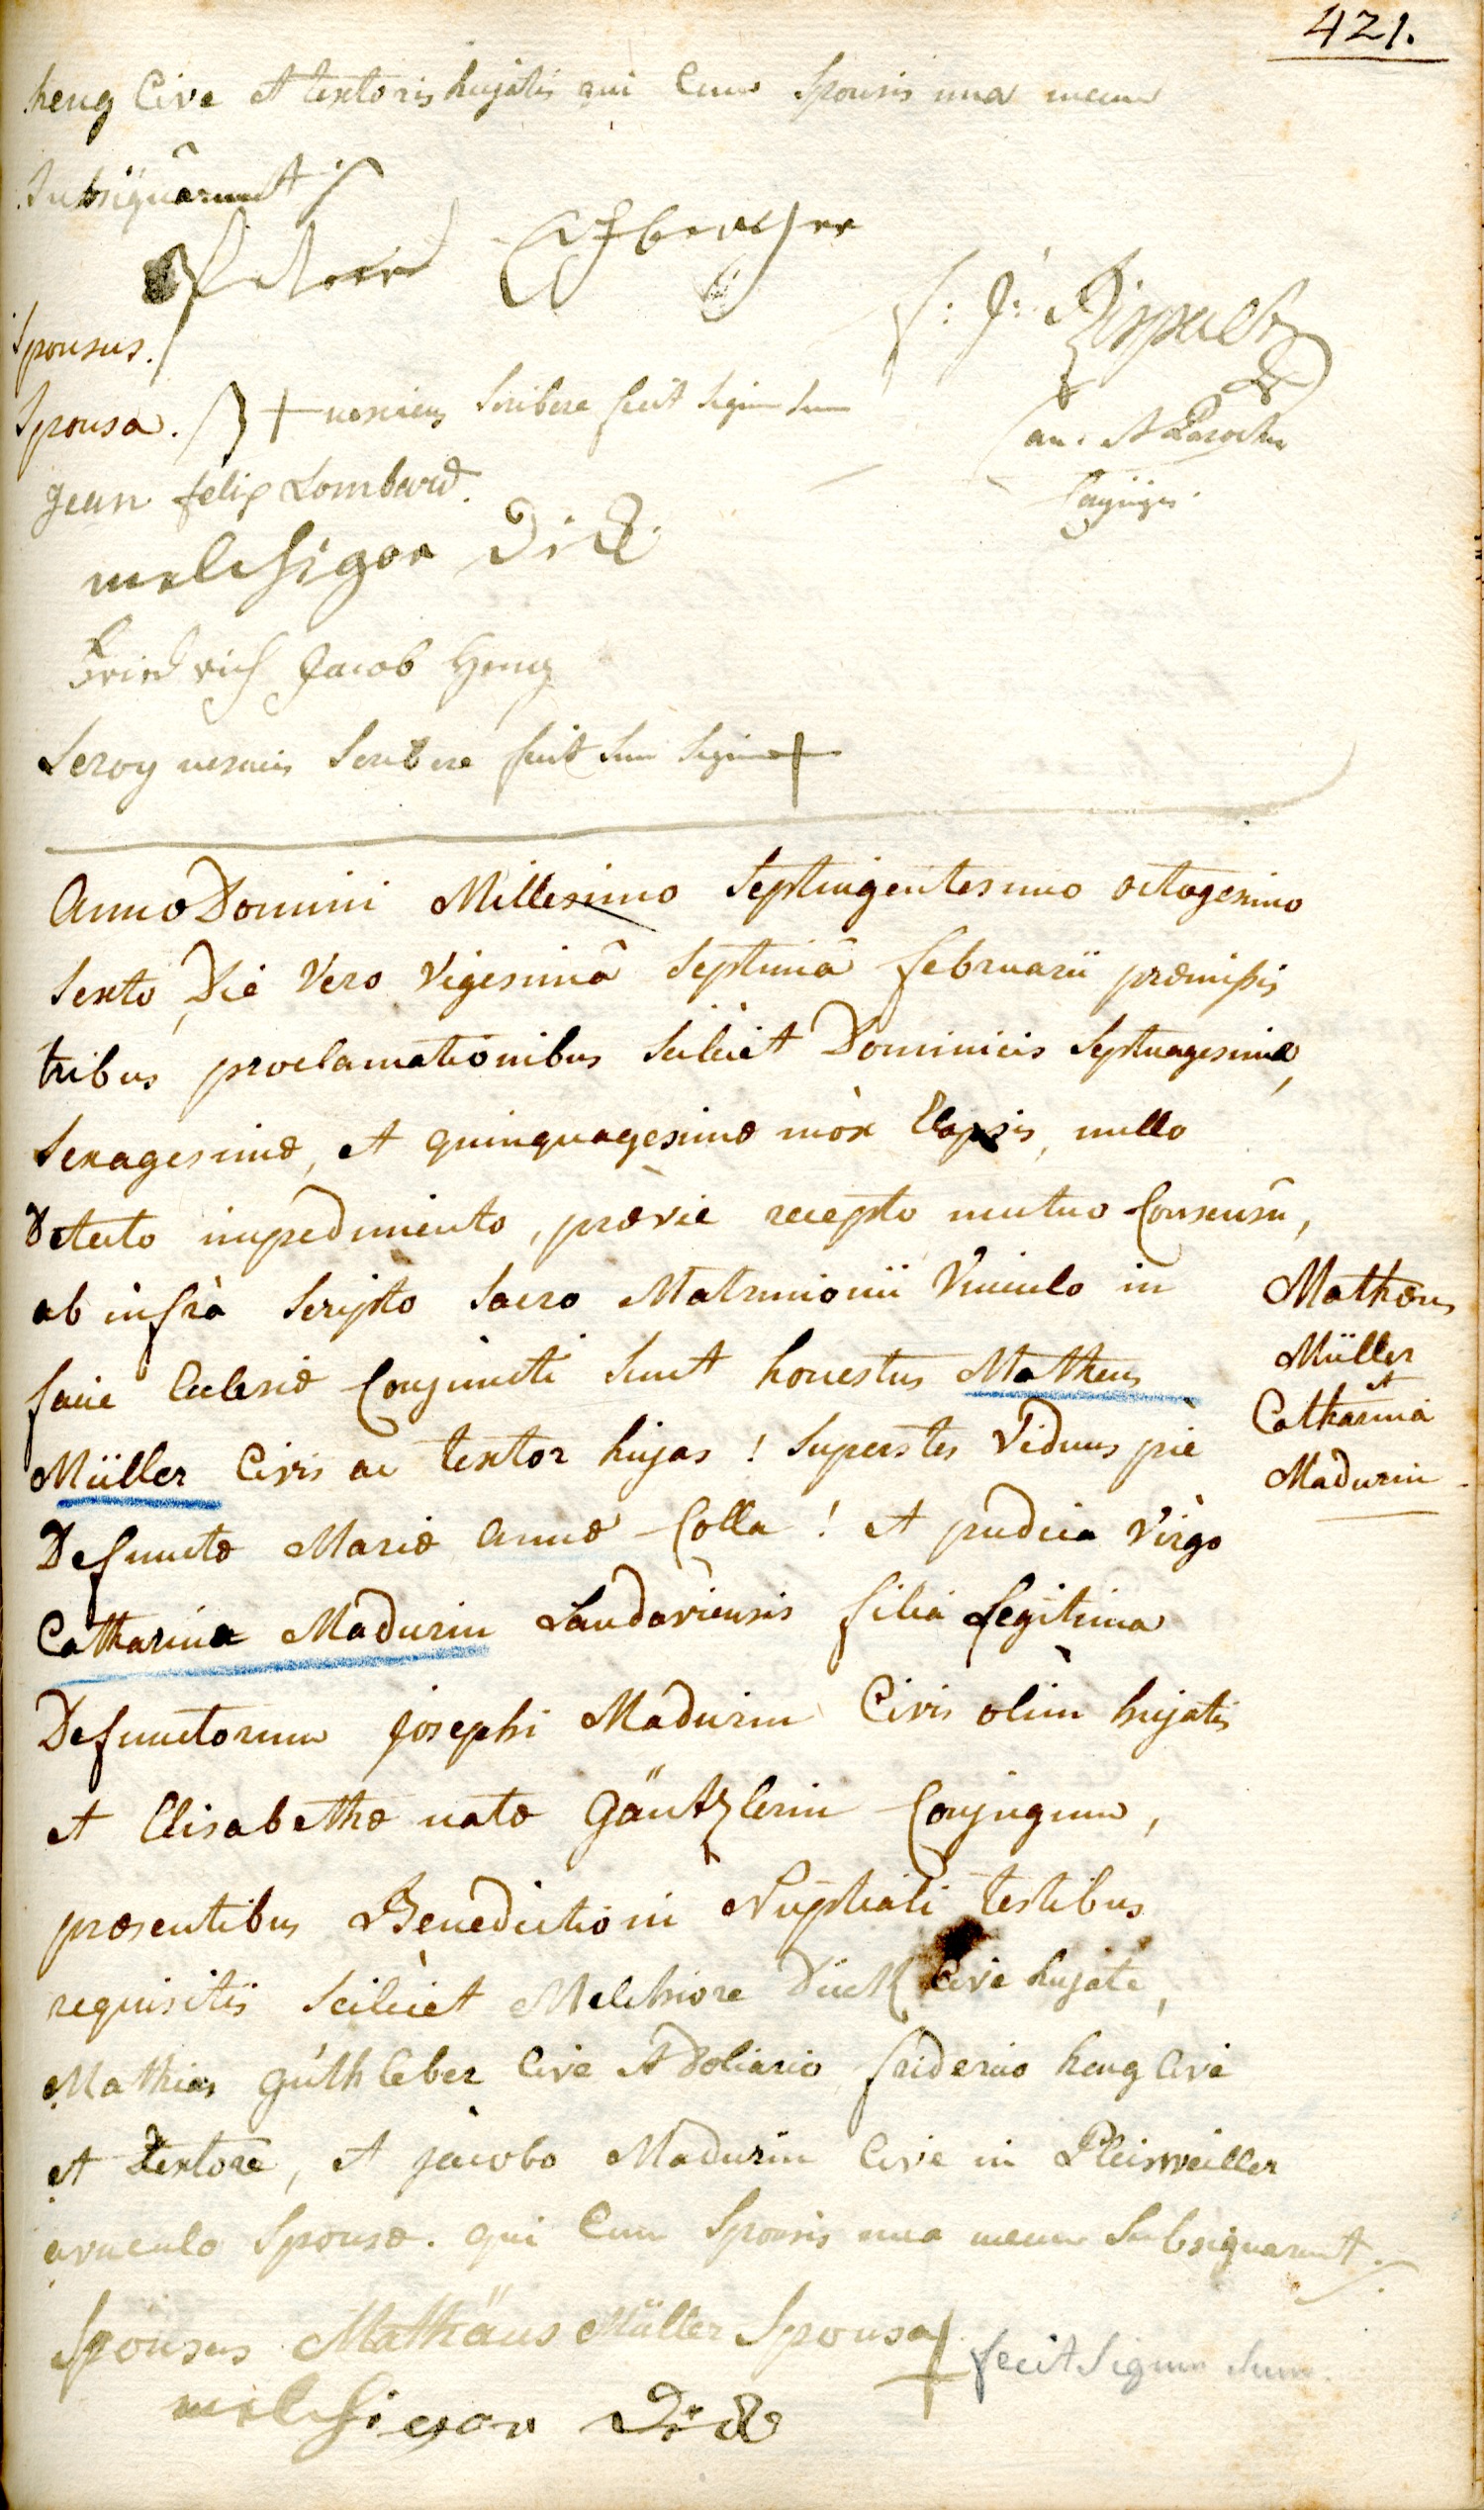 421.
heng Cive et textoris hujatis qui Cum Sponsis una mecum
Subsignârunt
Sponsus.
Sponsa. + nesciens Scribere fecit Signum Suum
can. et Parochus
jean felix Lombard.
melchigor Dick
Friedrich Jacob Heng
Leroy nesciens Scribere fecit Suum Signum +
Anno Domini Millesimo Septingentesimo octogesimo
Sexto, Die Vero Vigesimâ Septimâ februarii præmissis
tribus proclamationibus Scilicet Dominicis Septuagesimæ,
Sexagesimæ, et quinquagesimæ mòx Elapsis, nullo
Detecto impedimento, prævie recepto mutuo Consensû,
ab infrà Scripto Sacro Matrimonii Vinculo in
facie Ecclesiæ Conjuncti Sunt honestus Matheus
Müller Civis ac textor hujas ! Superstes Viduus piè
Defunctæ Mariæ Annæ Colla ! et pudica Virgo
Catharina Madurin Landaviensis filia Legitima
Defunctorum josephi Madurin Civis olim hujatis
et Elisabethæ natæ Gäntzlerin Conjugum,
præsentibus Benedictioni Nuptiali testibus
requisitis Scilicet Melchiore Dück Cive hujate,
Mathia Guthleber Cive et Doliario friderico heng Cive
et textore, et jacobo Madurin Cive in Pleisweiller
avunculo Sponsæ. qui Cum Sponsis una mecum Subsignarunt.
Mathæus
Müller
et
Catharina
Madurin
Sponsus Mathäus Müller Sponsa + fecit Signum Suum.
melchigor Dick